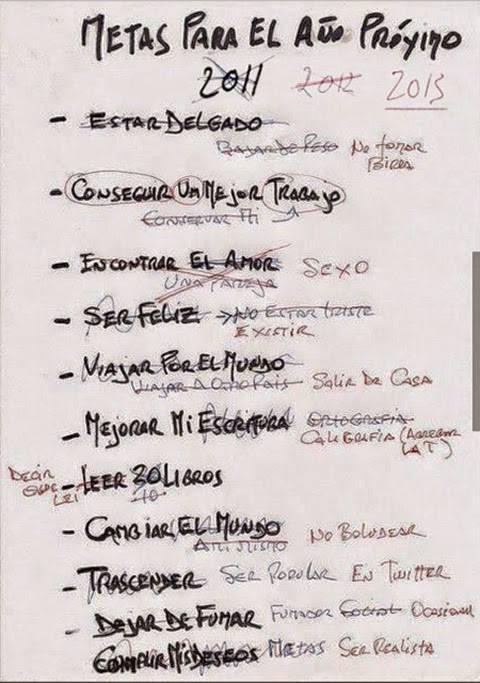 METAS PARA EL AÑO PRÓXIMO
2011 2012 2013
- ESTAR DELGADO
BAJAR DE PESO No tomar BIRRA
- CONSEGUIR UN MEJOR TRABAJO
CONSERVAR Mi
- ENCONTRAR EL AMOR SEXO
UNA PAREJA
- SER FELIZ → NO ESTAR TRISTE
EXISTIR
- VIAJAR POR EL MUNDO
VIAJAR A OTRO PAIS SALIR DE CASA
- MEJORAR Mi ESCRITURA ORTOGRAFIA
CALIGRAFIA (ARREGLAR LA T)
DECIR QUE LEI - LEER 30 LIBROS
10
- CAMBIAR EL MUNDO NO BOLUDEAR
A MI MISMO
- TRASCENDER SER POPULAR EN TWITTER
- DEJAR DE FUMAR FUMADOR SOCIAL OCASIONAL
CUMPLIR MIS DESEOS METAS SER REALISTA